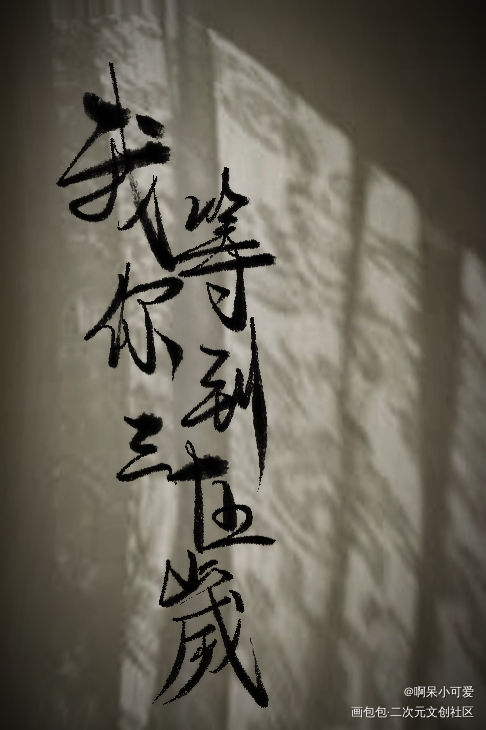 我等你到三十五歲
@啊呆小可爱
画包包·二次元文创社区